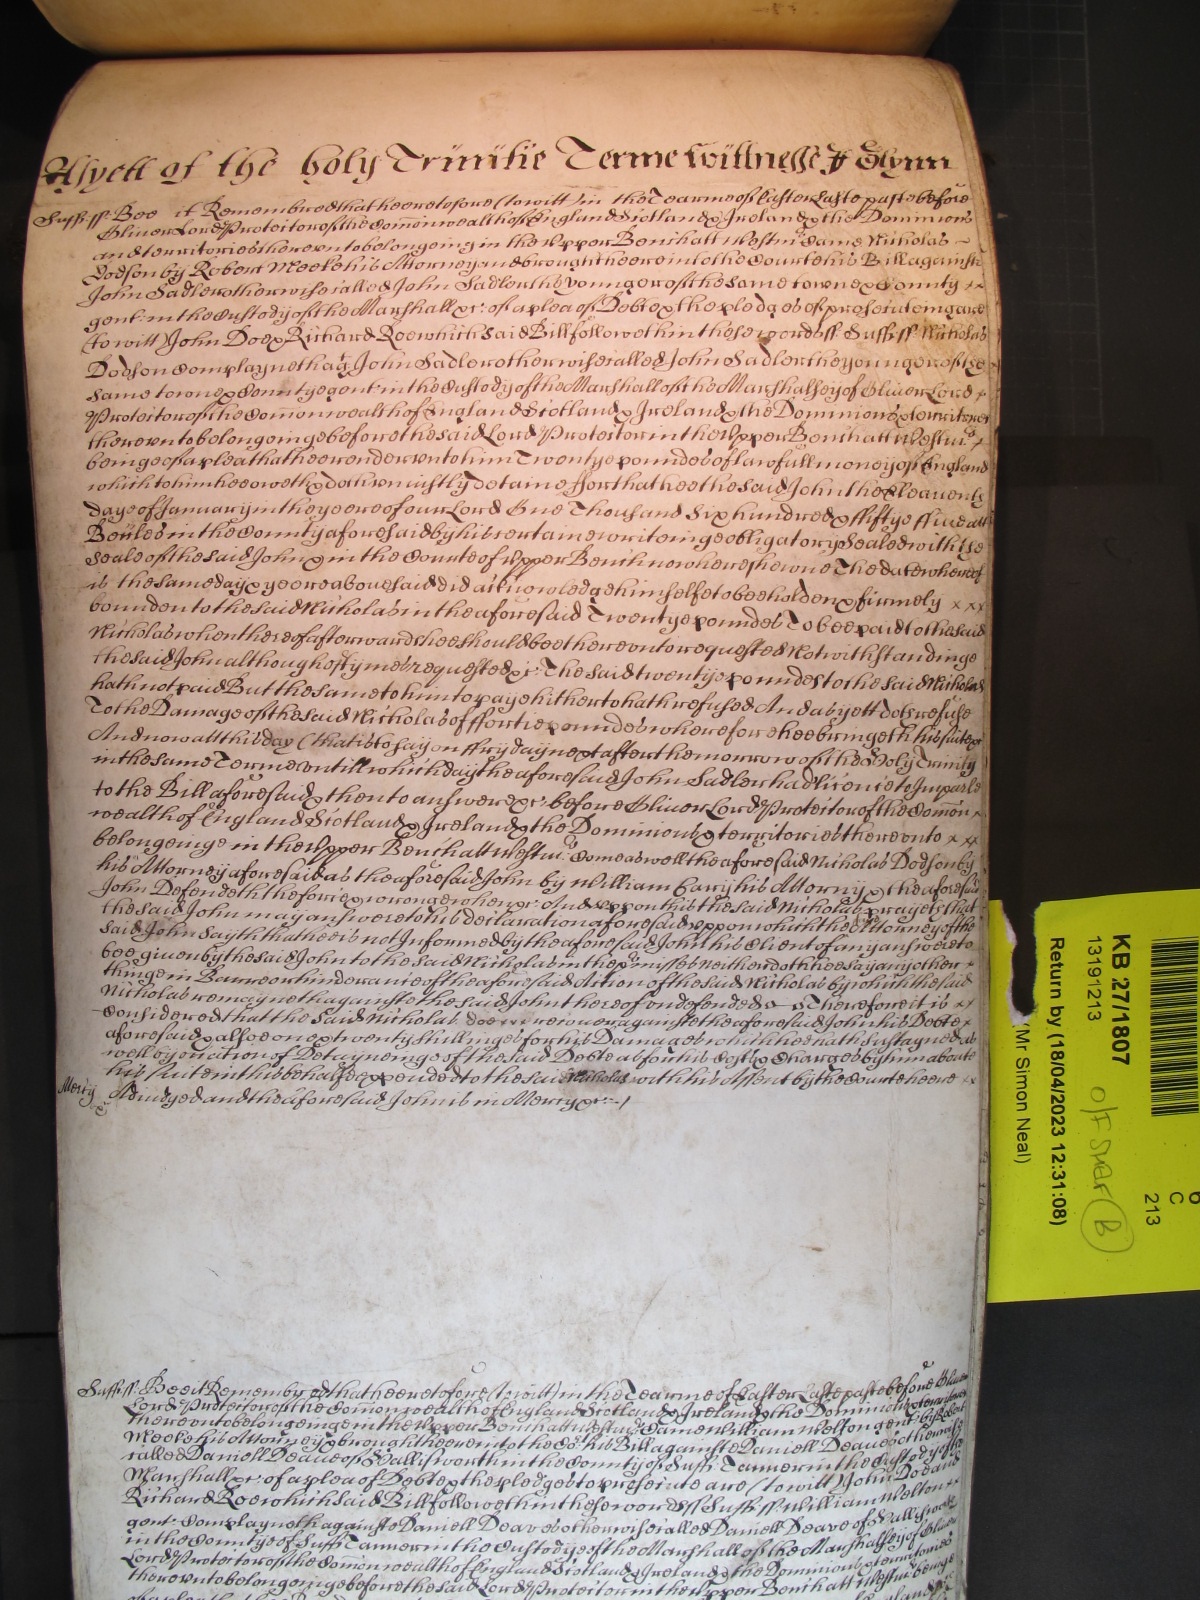 As yett of the holy Trinitie Terme Wittnesse J Glynn
Suff ss Bee it Remembred that heeretofore (to witt) in the Tearme of Easter Last past before
Oliver Lord Protector of the Comonwealth of England Scotland & Ireland & the Dominions
and territories thereunto belongeing in the Upper Bench att Westmr Came Nicholas
Dodson by Robert Meeke his Attorney and brought heere into the Courte his Bill againste
John Sadler otherwise called John Sadler the younger of the same towne & County
gent in the Custody of the Marshall &c of a plea of Debte & the pledges of prosecuteing are
(to witt) John Doe & Richard Roe which said Bill followeth in these wordes ss Suff ss Nicholas
Dodson Complayneth agt John Sadler otherwise called John Sadler the younger of the
same towne & County gent in the Custody of the Marshall of the Marshalsey of Oliver Lord
Protector of the Comonwealth of England Scotland & Ireland & the Dominions & territories
thereunto belongeinge before the said Lord Protector in the Upper Bench att Westmr
beinge of a plea that hee render unto him Twentye poundes of lawfull money of England
which to him hee oweth & doth uniustly detaine ffor that hee the said John the Eleaventh
daye of January in the yeere of our Lord One Thousand Six hundred & ffiftye ffive att
in the County aforesaid by his certaine writeinge obligatory Sealed with the
Seale of the said John & in the Courte of Upper Bench now here shewne The date whereof
is the same day & yeere abovesaid did acknowledge himselfe to bee holden & firmely
bounden to the said Nicholas in the aforesaid Twentye poundes To bee paid to the said
Nicholas when thereof afterwards hee should bee thereunto requested Notwithstandinge
the said John although oftymes requested &c The said twentye poundes to the said Nicholas
hath not paid But the same to him to paye hitherto hath refused And as yett doth refuse
To the Damage of the said Nicholas of ffortie poundes wherefore hee bringeth his suite &c
And now att this day (that is to say on ffryday next after the morrow of the Holy Trinity
in the same Terme untill which day the aforesaid John Sadler had licence to Imparle
to the Bill aforesaid & then to answere &c before Oliver Lord Protector of the Comon
wealth of England Scotland & Ireland & the Dominions & territories thereunto
belongeinge in the Upper Bench att Westmr Come as well the aforesaid Nicholas Dodson by
his Attorney aforesaid as the aforesaid John by William his Attorny & the aforesaid
John Defendeth the force & wronge when &c And uppon this the said Nicholas prayeth that
the said John may answere to his declaration aforesaid uppon which the Attorney of the
said John Sayth that hee is not Informed by the aforesaid John his Client of any answere to
bee given by the said John to the said Nicholas in the pmisses neither doth hee say any other
thinge in Barre or hinderance of the aforesaid Action of the said Nicholas by which the said
Nicholas remayneth againste the said John thereof undefended &c Therefore it is
Considered that the said Nicholas doe recover againste the aforesaid John his Debte
aforesaid & alsoe one & twenty shillinges for his Damages which hee hath Sustayned as
well by occation of Detayneinge of the said Debte as for his Costs & Charges by him aboute
his suite in this behalfe expended to the said Nicholas with his Assent by the Courte heere
Mercy Adiudged and the aforesaid John is in Mercy &c
Suff ss Bee it Remembred that heeretofore (to witt) in the Tearme of Easter Last past before Oliver
Lord Protector of the Comonwealth of England Scotland & Ireland & the Dominions & territories
thereunto belongeinge in the Upper Bench att Westmr Came William Welton gent by Robert
Meeke his Attorney & brought heere into the Cort his Bill againste Daniell Deave otherwise
called Daniell Deave of in the County of Suff Tanner in the Custody of the
Marshall &c of a plea of Debte & the pledges to prosecute are (to witt) John Doe and
Richard Roe which said Bill followeth in these wordes ss Suff ss William Welton
gent Complayneth againste Daniell Deave otherwise called Daniell Deave of
in the County of Suff Tanner in the Custody of the Marshall of the Marshalsey of Oliver
Lord Protector of the Comonwealth of England Scotland & Ireland & the Dominions & territories
thereunto belongeinge before the said Lord Protector in the Upper Bench att Westmr beinge
KB 27/1807
13191213
Return by (18/04/2023 12:31:08)
(Mr Simon Neal)
O/F
B
6
C
213